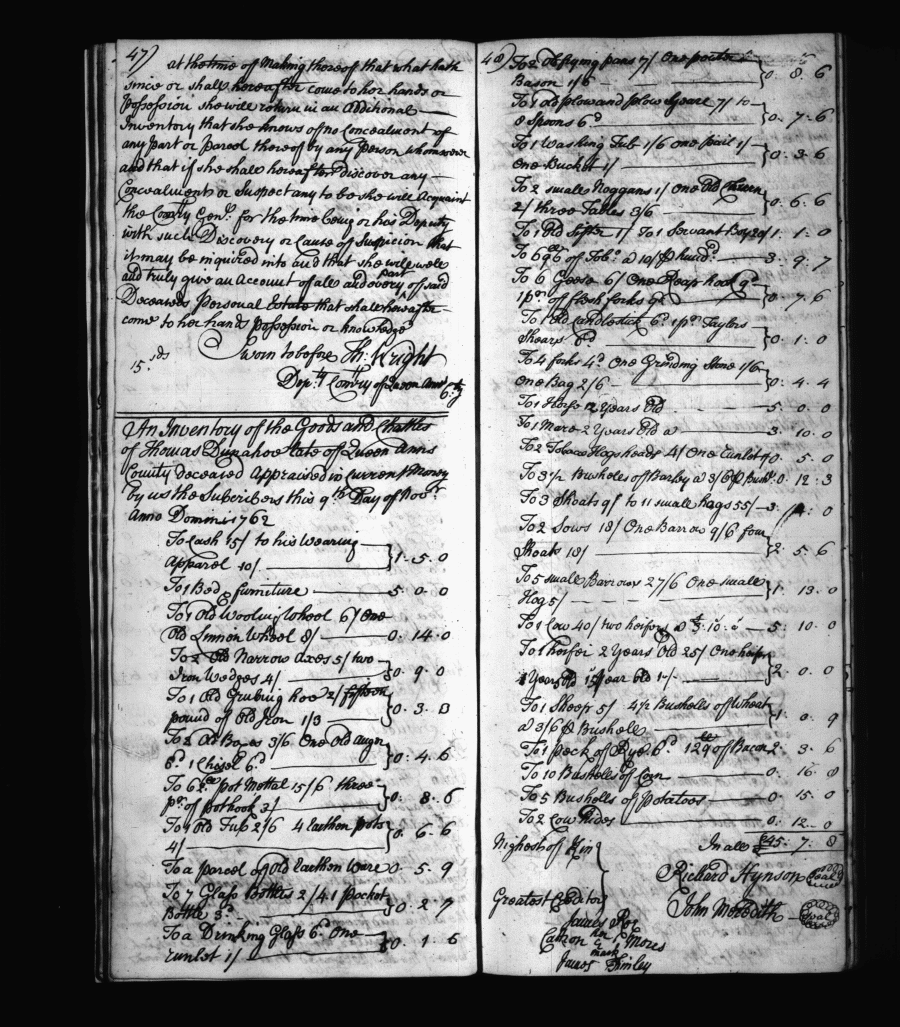 47)
at the time of Making thereof that what hath
since or shall hereafter come to her hands or
Possession she will return in an additional
Inventory that she knows of no Concealment of
any Part or Parcel thereof by any Person whomsoever
and that if she shall hereafter discover any
Concealments or Suspect any to be she will Acquaint
the Comry Genl. for the time being or his Deputy
with such Discovery or Cause of Suspicion that
it may be inquired into and that she will well
and truly give an Account of all and every part of said
Deceaseds Personal Estate that shall hereafter
come to her hands possession or knowledge
Sworn to before Th: Wright
15. sds
Dep.ty Comry of Queen Anns Cty
An Inventory of the Goods and Chattles
of Thomas Dunahoe late of Queen Anns
County deceased Appraised in Current Money
by us the Subcribers this 9th Day of Novr
Anno Domini 1762
To Cash 15/ to his Wearing
Apparel 10/ } 1. 5. 0
To 1 Bed & furniture 5. 0. 0
To 1 Old Wooling Wheel 6/ One
Old Linnon Wheel 8/ 0. 14. 0
To 2 Old Narrow axes 5/ two
Iron Wedges 4/ } 0. 9. 0
To 1 Old Grubing hoe 2/ fifteen
pound of Old Iron 1/3 } 0. 3. 3
To 2 Old 3/6 One Old augr
6d 1 Chisel 6d } 0. 4. 6
To 6 pot Mettal 15/6 three
pr. of pothook 3/ } 0. 8. 6
To 1 Old Tub 2/6 4 Earthen pots
4/ } 0. 6. 6
To a parcel of Old Earthen Ware 0. 5. 9
To 7 Glass Bottles 2/4 1 Pocket
Bottle 3d } 0. 2. 7
To a Drinking Glass 6d One
runlet 1/ } 0. 1. 6
48)
To 2 Old frying pans 7/ One pewter
Bason 1/6 } 0. 8. 6
To 1 old plow and plow Sheare 7/ to
8 Spoons 6d } 0. 7. 6
To 1 Washing Tub 1/6 One pail 1/
One Bucket 1/ } 0. 3. 6
To 2 small Noggans 1/ One Old Churn
2/ three Tables 3/6 } 0. 6. 6
To 1 Old Sifter 1/ To 1 Servant Boy 20/ 1. 1. 0
To 696 of Tobo. a 10/ ⅌ hund. 3. 9. 7
To 6 Geese 6/ One Reap hook 9d
1 pr. of flesh forks 9d } 0. 7. 6
To 1 Old Candlestick 6d 1 pr. Taylors
Shears 6d } 0. 1. 0
To 4 forks 4d One Grinding Stone 1/6
One Bag 2/6 } 0. 4. 4
To 1 Horse 12 Years Old 5. 0. 0
To 1 Mare 2 Years Old a 3. 10. 0
To 2 Tobaco Hogsheads 4/ One Runlet 1/ 0. 5. 0
To 3½ Busholes of Barley a 3/6 ⅌ Bushl. 0. 12. 3
To 3 Shoats 9/ to 11 small hogs 55/ 3. 4. 0
To 2 Sows 18/ One Barrow 9/6 four
Shoats 18/ } 2. 5. 6
To 5 small Barrows 27/6 One small
Hog 5/ } 1. 13. 0
To 1 Cow 40/ two heifers a 5. 10. 0
To 1 heifer 2 Years Old 25/ One heifer
1 Year Old 15/ } 2. 0. 0
To 1 Sheep 5/ 4½ Busholls of Wheat
a 3/6 ⅌ Bushole } 1. 0. 9
To 1 peck of Rye 6d 129 of Bacon 2. 3. 6
To 10 Busholls of Corn 0. 16. 8
To 5 Busholls of Potatoes 0. 15. 0
To 2 Cow Hides 0. 12. 0
Nighest of Kin } In all £45. 7. 8
Richard Hynson Seal
Greatest Creditor John Meredith Seal
James Roe
her
mark
James Finley